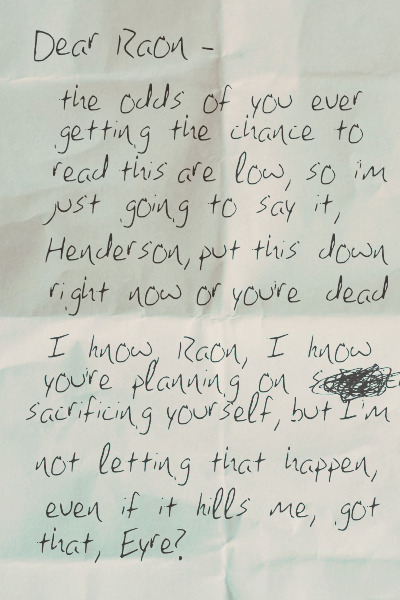 Dear Raon -
the odds of you ever
getting the chance to
read this are low, so i'm
just going to say it,
Henderson, put this down
right now or you're dead
I know, Raon, I know
you're planning on
sacrificing yourself, but I'm
not letting that happen,
even if it kills me, got
that, Eyre?